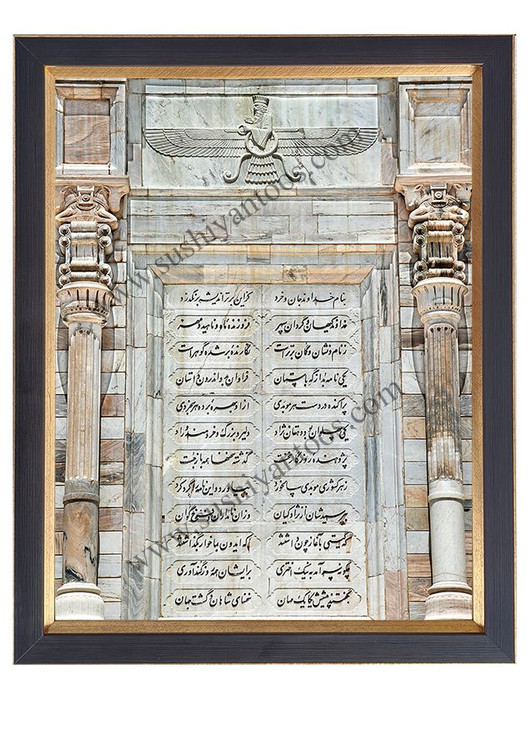 بنام خداوند جان و خرد کزین برتر اندیشه برنگذرد
خداوند کیهان و گردان سپهر فروزنده ماه و ناهید و مهر
ز نام و نشان و گمان برترست نگارنده بر شده گوهرست
یکی نامه بد از گه باستان فراوان بدو اندرون داستان
پراکنده در دست هر موبدی ازو بهره برده هر بخردی
یکی پهلوان بود دهقان نژاد دلیر و بزرگ و خردمند و راد
پژوهنده روزگار نخست گذشته سخنها همه باز جست
ز هر کشوری موبدی سالخورد بیاورد و این نامه را گرد کرد
بپرسیدشان از نژاد کیان وزان نامداران فرخ گوان
که گیتی به آغاز چون داشتند که ایدون بما خوار بگذاشتند
چگونه سرآمد به نیک اختری برایشان همه روز کندآوری
بگفتند پیشش یکایک مهان سخنهای شاهان و گشت جهان
www.sushiyantoos.com
www.sushiyantoos.com